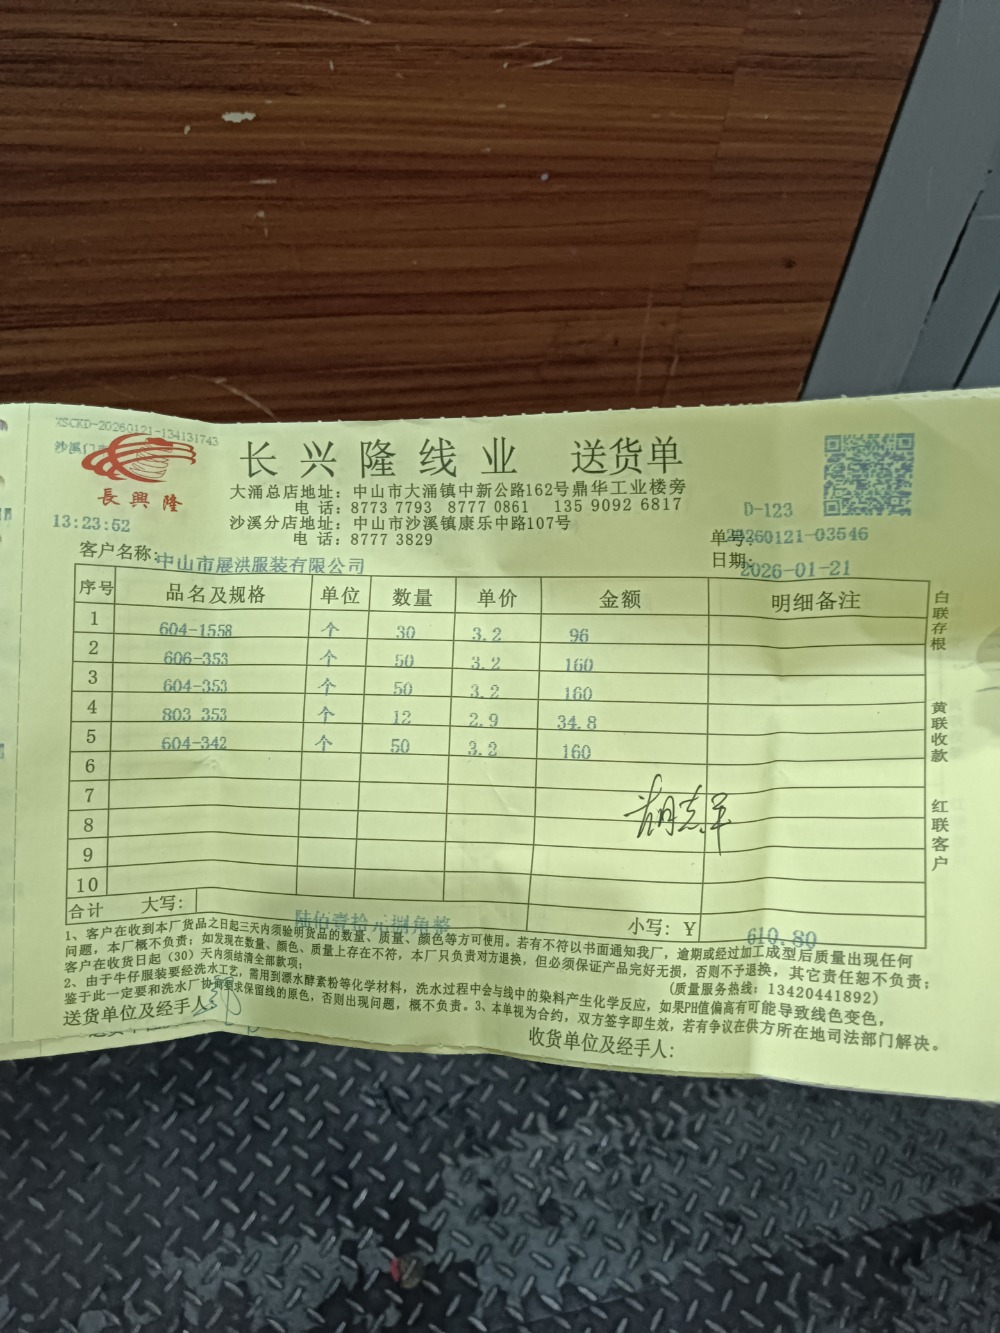 XSCKD-20260121-134131743
沙溪门
長興隆
长兴隆线业 送货单
大涌总店地址：中山市大涌镇中新公路162号鼎华工业楼旁
电 话：8773 7793 8777 0861 135 9092 6817
沙溪分店地址：中山市沙溪镇康乐中路107号
电 话：8777 3829
13:23:52
D-123
单号：20260121-03546
日期：2026-01-21
客户名称：中山市展洪服装有限公司
序号 品名及规格 单位 数量 单价 金额 明细备注
1 604-1558 个 30 3.2 96
2 606-353 个 50 3.2 160
3 604-353 个 50 3.2 160
4 803 353 个 12 2.9 34.8
5 604-342 个 50 3.2 160
6
7
8
9
10
合计 大写：陆佰壹拾元捌角整 小写：Y 610.80
白联存根
黄联收款
红联客户
1、客户在收到本厂货品之日起三天内须验明货品的数量、质量、颜色等方可使用。若有不符以书面通知我厂，逾期或经过加工成型后质量出现任何
问题，本厂概不负责；如发现在数量、颜色、质量上存在不符，本厂只负责对方退换，但必须保证产品完好无损，否则不予退换，其它责任恕不负责；
客户在收货日起（30）天内须结清全部款项； (质量服务热线：13420441892)
2、由于牛仔服装要经洗水工艺，需用到漂水酵素粉等化学材料，洗水过程中会与线中的染料产生化学反应，如果PH值偏高有可能导致线色变色，
鉴于此一定要和洗水厂协商要求保留线的原色，否则出现问题，概不负责。3、本单视为合约，双方签字即生效，若有争议在供方所在地司法部门解决。
送货单位及经手人：
收货单位及经手人：